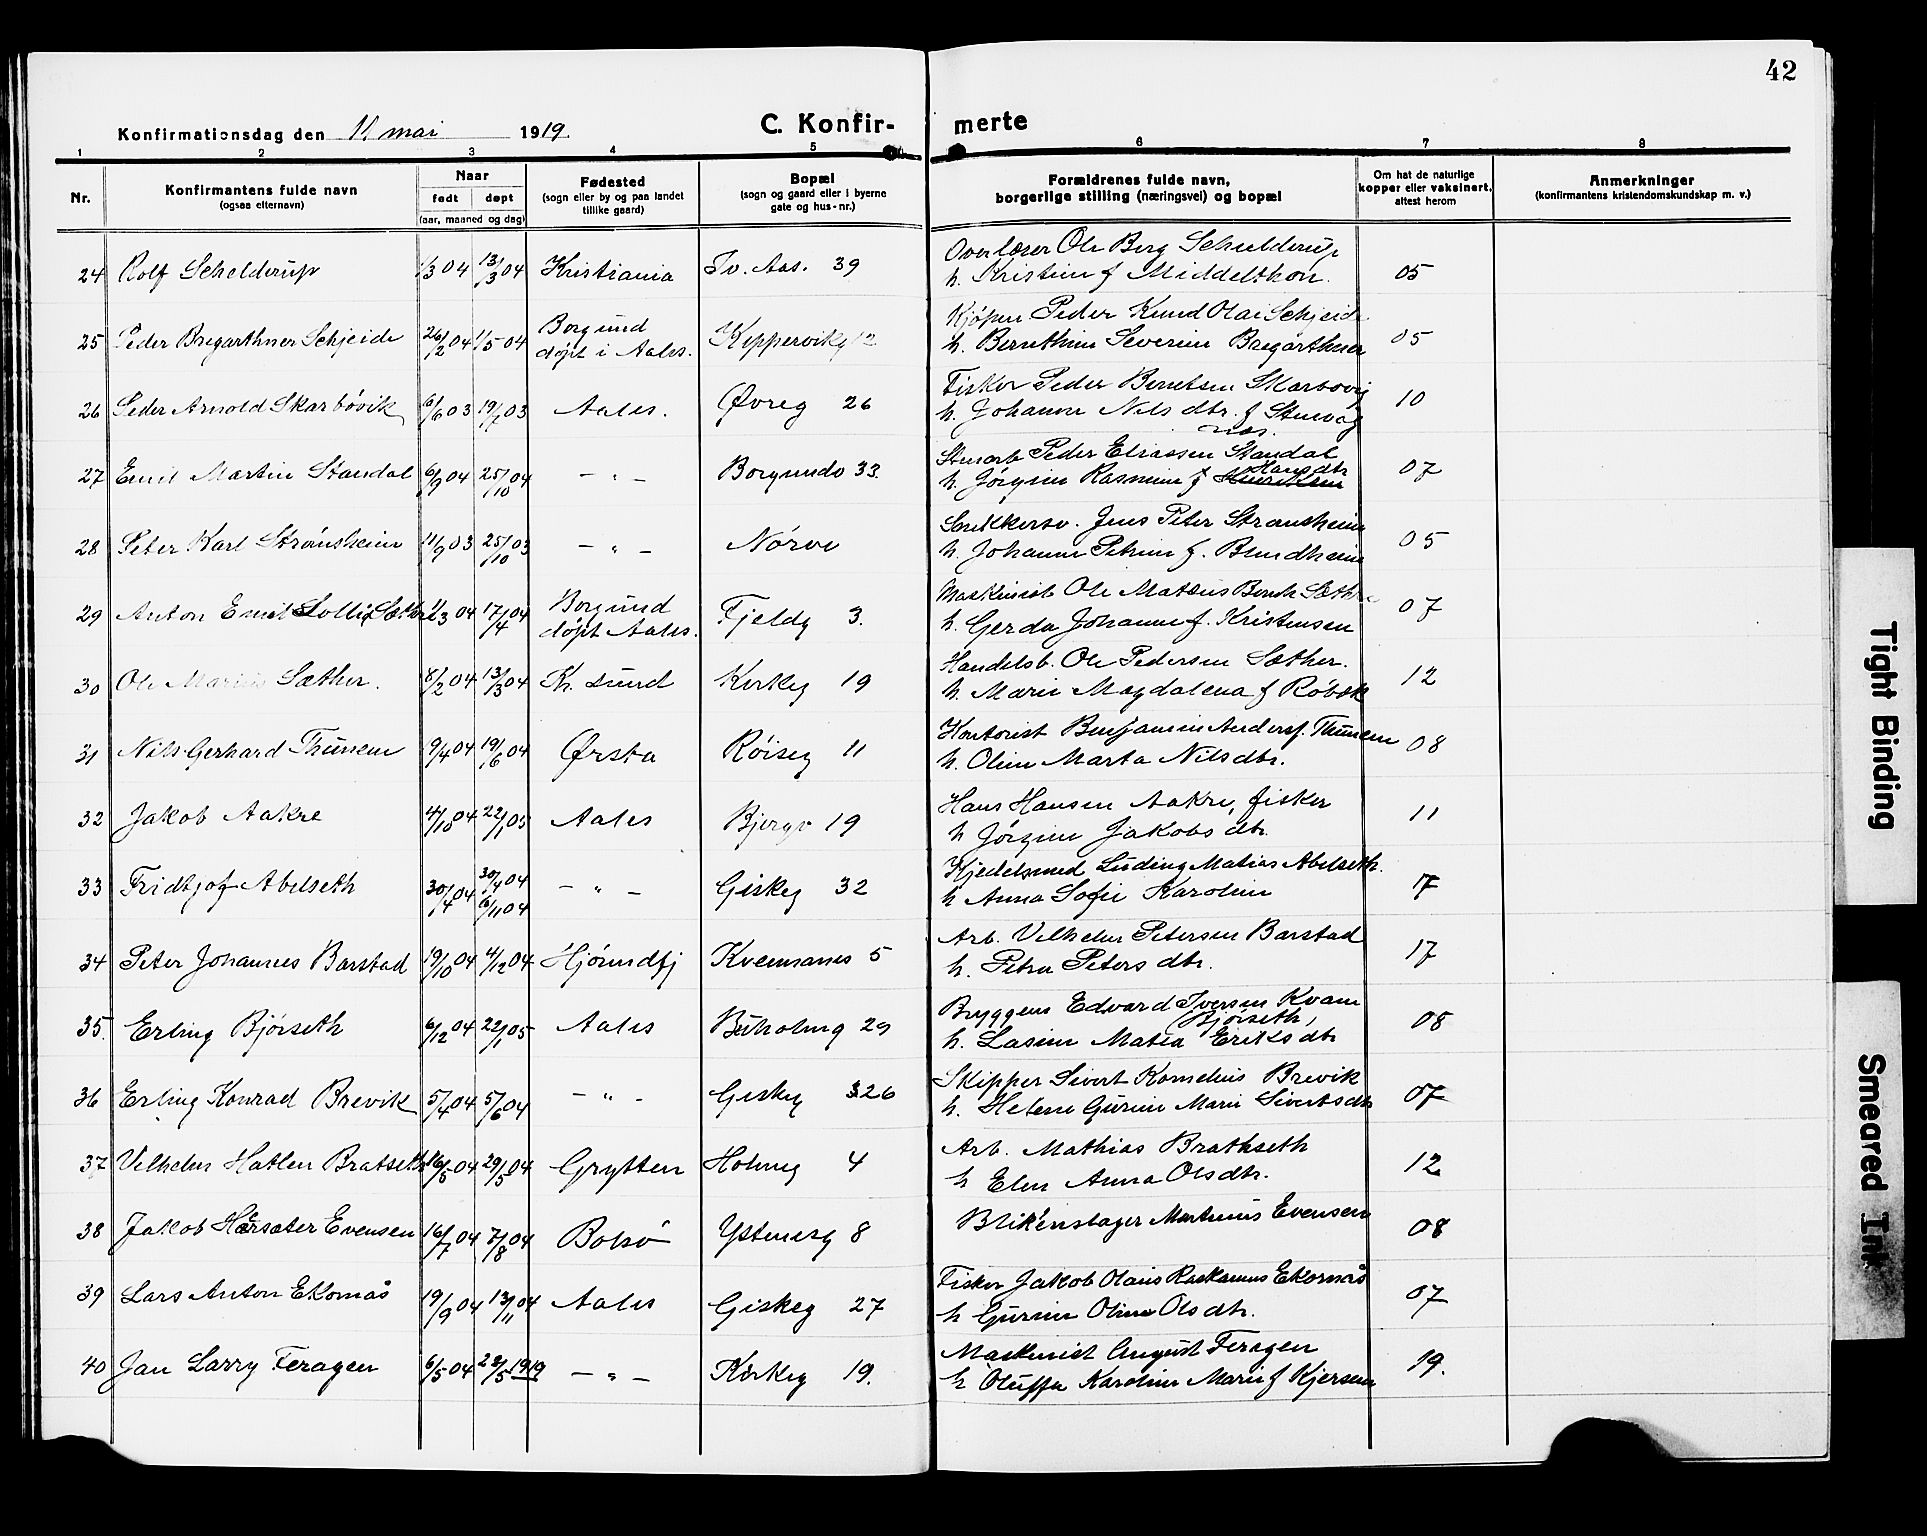 42
Konfirmationsdag den 11. mai 1919.
C. Konfir- merte
1 2 3 4 5 6 7 8
Nr.
Konfirmantens fulde navn
(ogsaa elternavn)
Naar
født døpt
(aar, maaned og dag)
Fødested
(sogn eller by og paa landet
tillike gaard)
Bopæl
(sogn og gaard eller i byerne
gate og hus-nr.)
Forældrenes fulde navn,
borgerlige stilling (næringsvei) og bopæl
Om hat de naturlige
kopper eller vaksinert,
attest herom
Anmerkninger
(konfirmantens kristendomskundskap m. v.)
Overlærer Ole Berg Schelderup
24 Rolf Schelderup 1/3 04 13/3 04 Kristiania Tv. Aas. 39 h. Kristine f Middelthon. 05
Kjøpm Peder Knud Olai Schjeide
25 Peder Bregarthner Schjeide 26/2 04 1/5 04 Borgund
døpt i Aales. Kippervikg 12 h. Bernthine Severine Bregarthner 05
Fisker Peder Berntsen Skarbovig
26 Peder Arnold Skarbövik 6/6 03 19/7 03 Aales. Øvreg 26 h. Johanne Nilsdbr. f Stenvåg 10
Stenarb Peder Eliassen Standal
27 Emil Martin Standal 6/9 04 25/10 04 — " — Borgundv 33. h. Jörgine Rasmine f Hansdtr 07
Snekkersv. Jens Peter Stransheim
28 Peter Karl Strånsheim 11/9 03 25/10 03 — " — Nörve h. Johanne Petrine f. Brundheim 05
Maskinist Ole Mateus Bernh Sæthre
29 Anton Emil Sollig Sæthre 1/3 04 17/4 04 Borgund
døpt Aales. Fjeldg 3. h. Gerda Johanne f. Kristensen 07
Handelsb. Ole Pedersen Sæther.
30 Ole Marius Sæther. 8/2 04 13/3 04 Kr. sund Kirkeg 19 h. Marie Magdalena f Röbæk 12
Kontorist Benjamin Andersf. Thunem
31 Nils Gerhard Thunem 9/4 04 19/6 04 Ørsta Röiseg 11 h. Oline Marta Nilsdtr. 08
Hans Hansen Aakre, fisker
32 Jakob Aakre 4/10 04 22/1 05 Aales Bjergv 19 h Jörgine Jakobsdtr. 11
Kjedelsmed Luding Matias Abelseth.
33 Fridtjof Abelseth 30/4 04 30/4 04
6/11 04 — " — Giskeg 32 h Anna Sofie Karoline 17
Arb. Vilhelm Petersen Barstad
34 Peter Johannes Barstad 19/10 04 4/12 04 Hjörundfj Kvennanes 5 h. Petra Petersdtr. 17
Bryggem Edvard Iversen Kvam
(Bjørseth)
35. Erling Bjørseth 6/12 04 22/1 05 Aales Buholmg 29 h. Lasine Matea Eriksdtr 08
Skipper Sivert Kornelius Brevik
36 Erling Konrad Brevik 5/4 04 5/6 04 — " — Giskeg 32b h. Helene Gurine Marie Sivertsdtr 07
Arb. Mathias Brathseth
37 Vilhelm Hatlen Bratseth 16/5 04 29/5 04 Grytten Holmeg 4 h Elen Anna Olsdtr. 12
Blikenslager Martinus Evensen
38 Jakob Hersæter Evensen 16/7 04 7/8 04 Bolsö Ystenesg 8 08
Fisker Jakob Olaus Rasmus Ekornås
39 Lars Anton Ekornås 19/9 04 13/11 04 Aales Giskeg 27 h Gurine Oline Olsdtr. 07
Maskinist August Feragen
40 Jan Larry Feragen 6/5 04 28/5 1919 — " — Kirkeg 19. h Oluffa Karoline Marie f Kjersem 19.
Tight Binding
Smeared Ink